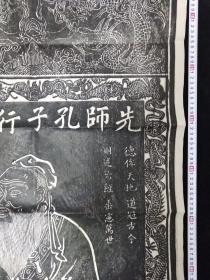 先師孔子行
德侔天地道冠古今
刪述六經垂憲萬世